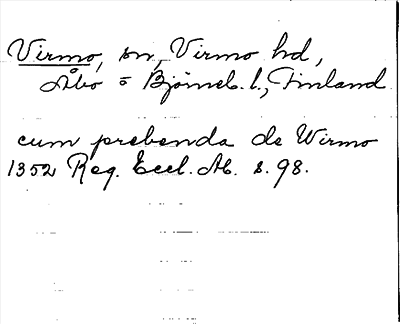 Virmo, sn, Virmo hd,
Åbo o Björneb. l., Finland
cum prebenda de Wirmo
1352 Reg. Eccl. Ab. s. 98.